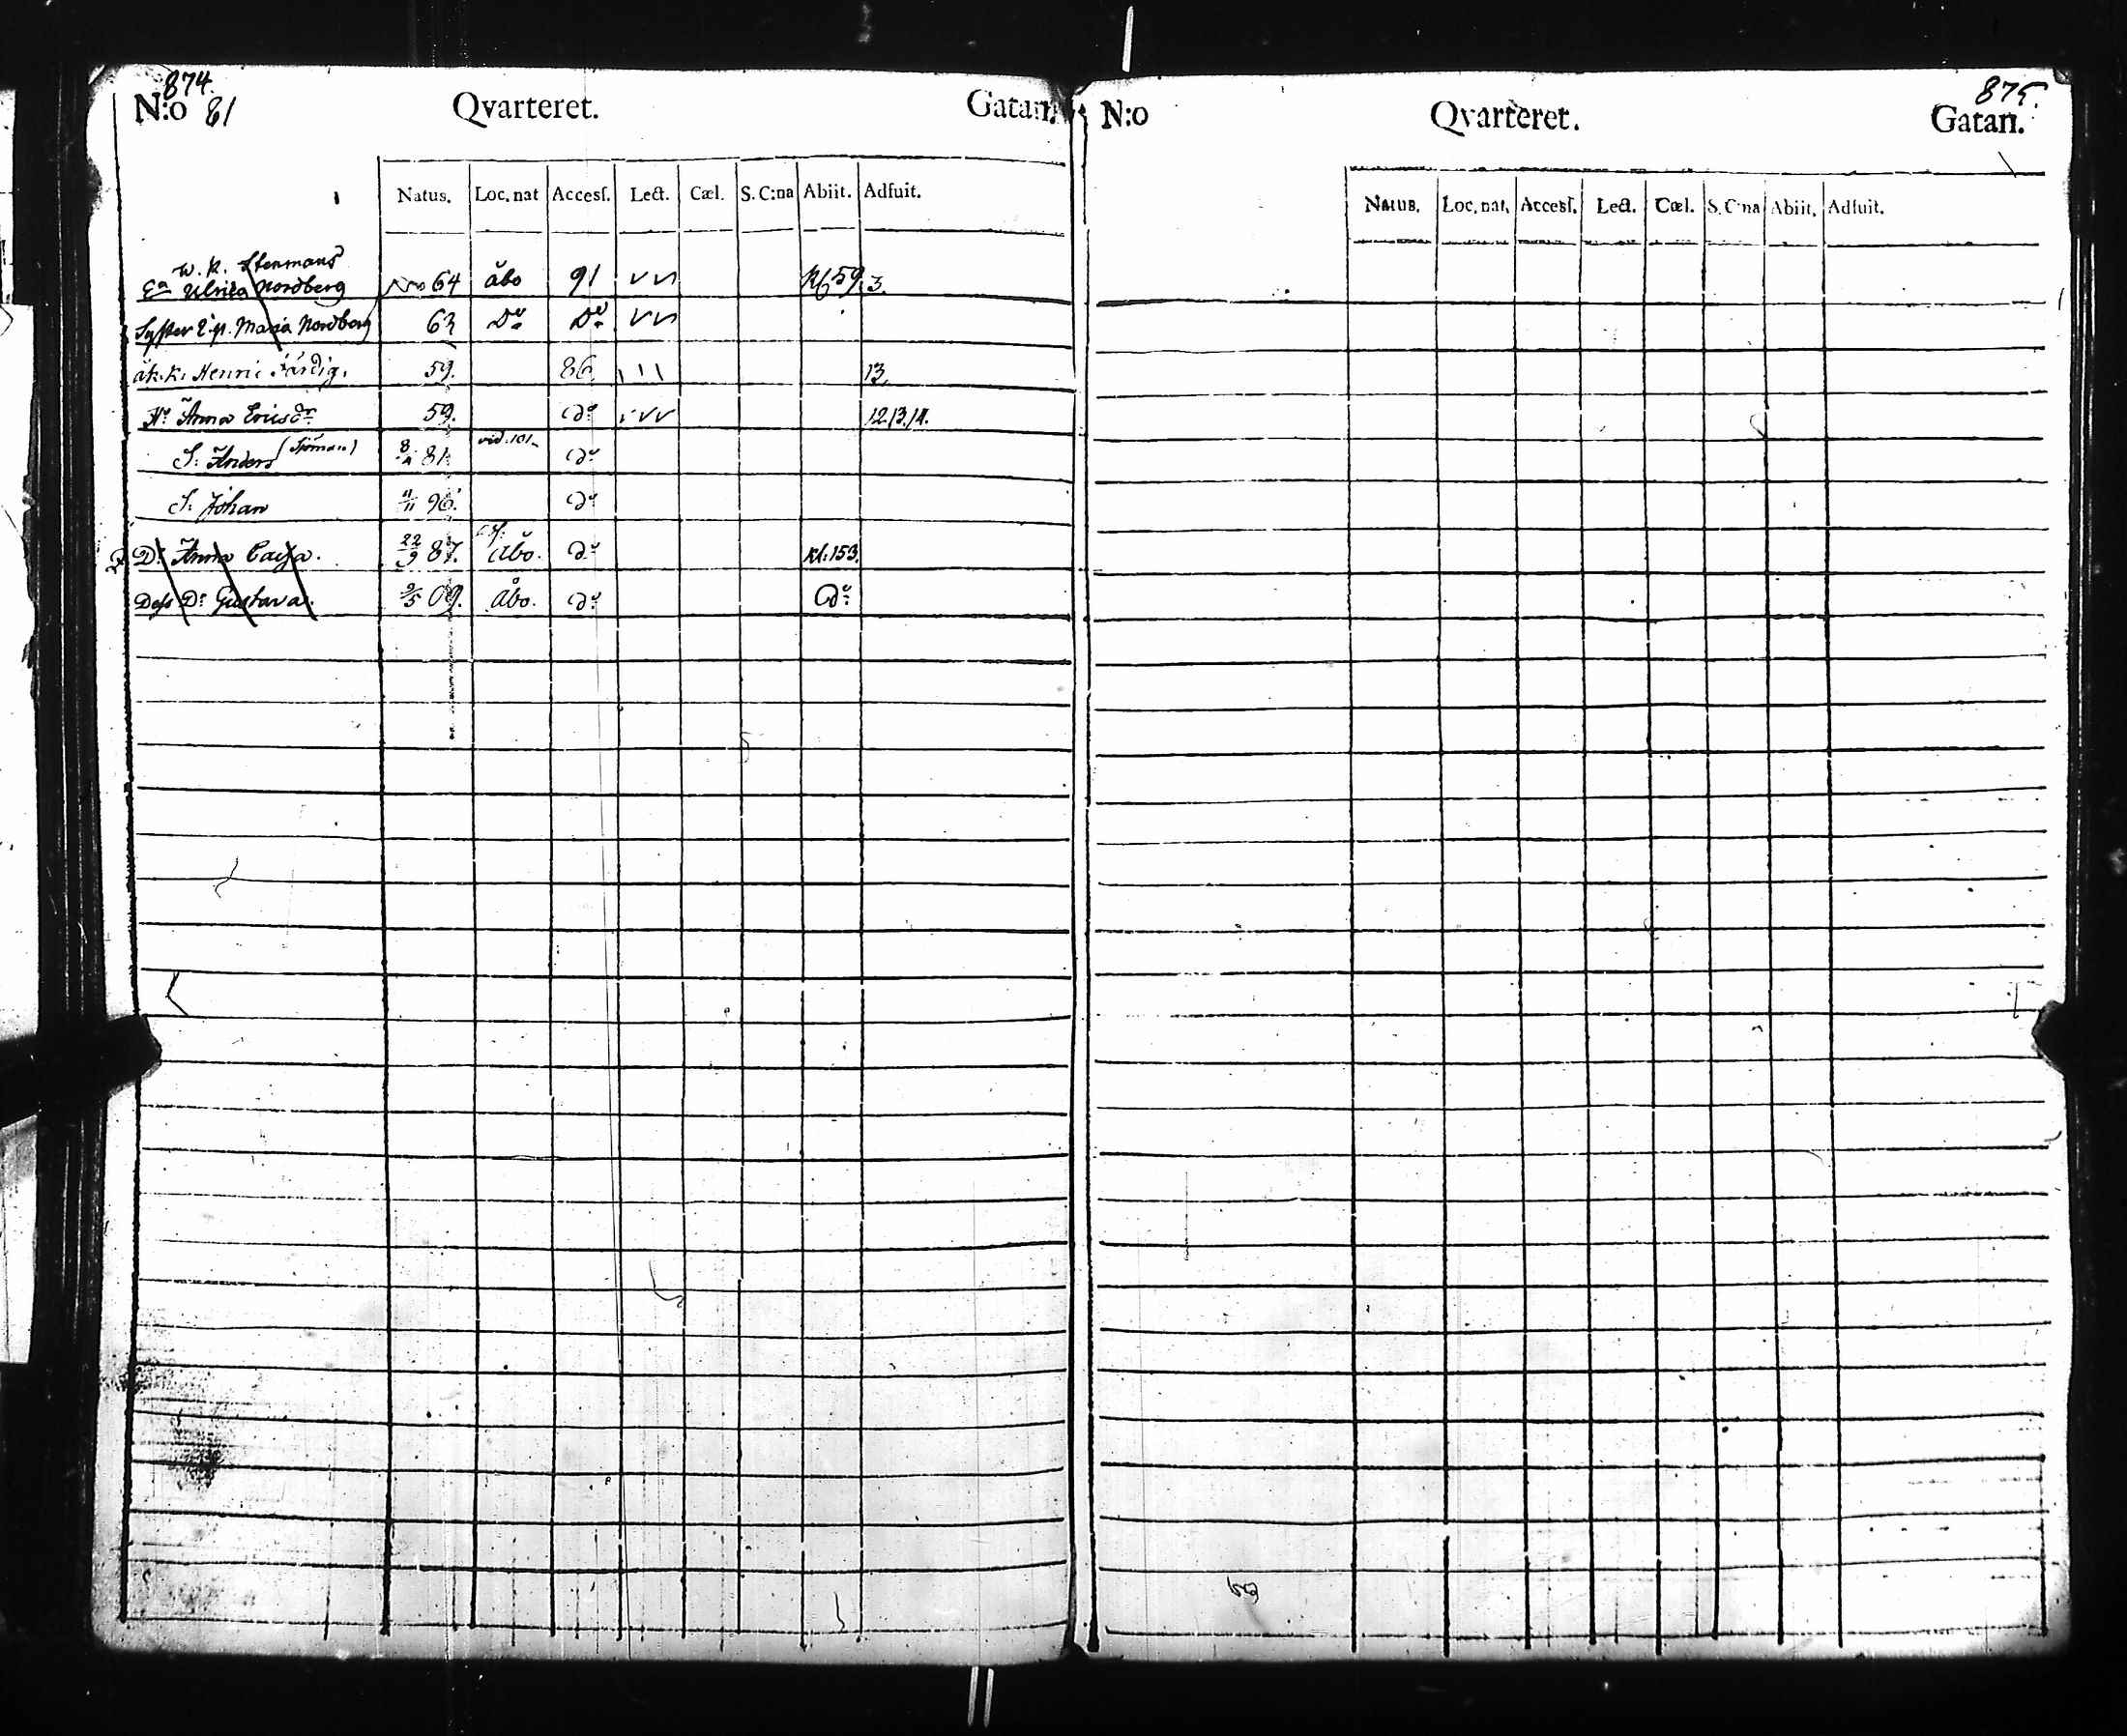 874.
N:o 81 Qvarteret. Gatan.
Natus. Loc. nat Accesſ. Lect. Cæl. S. C:na Abiit. Adfuit.
W. K. Stenmans
Ea Ulrica Nordberg 64 åbo 91 Kl 59. 3.
Syster Maria Nordberg 63 Do Do
åk. k. Henric Färdig. 59. 86. 13.
Hu Anna Ericsdr 59. do 12.13.14.
S. Anders (Sjöman) 8/4 81. vid. 101 do
S. Johan 96. do
Dr Anna Cajsa. 22/9 87. Åbo. do Kl. 153.
Dess Dr Gustava. 2/5 09. Åbo. do do
875.
N:o Qvarteret. Gatan.
Natus. Loc. nat. Accesſ. Lect. Cœl. S. C:na Abiit. Adfuit.